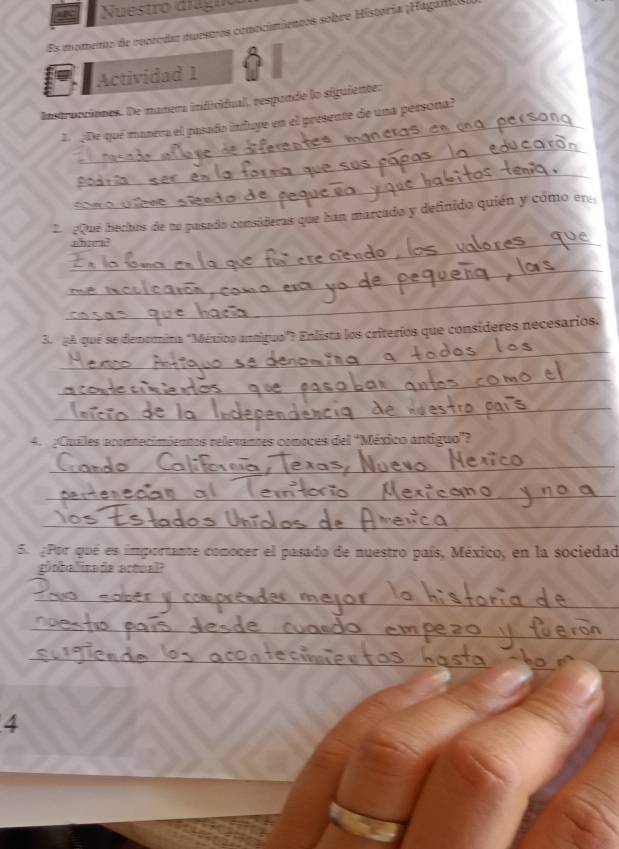 ABC Nuestro
Es momento de recordar nuestros conocimientos sobre Historia ¡Hagámoslo
Actividad 1
Instrucciones. De manera individual, responde lo siguiente:
1. ¿De qué manera el pasado influye en el presente de una persona?
El pasado influye de diferentes maneras en una persona
podria ser en la forma que sus papas la educarón
como viene siendo de pequeña y que habitos tenia.
2. ¿Qué hechos de tu pasado consideras que han marcado y definido quién y cómo eres
ahora?
En la forma en la que fui creciendo, los valores que
me inculcarón, como era yo de pequeña, las
cosas que hacia
3. ¿A qué se denomina "México antiguo"? Enlista los criterios que consideres necesarios.
Mexico Antiguo se denomina a todos los
acontecimientos que pasaban antes como el
Inicio de la Independencia de nuestro país
4. ¿Cuáles acontecimientos relevantes conoces del "México antiguo"?
Cuando California, Texas, Nuevo Mexico
pertenecian al Territorio Mexicano y no a
los Estados Unidos de America
5. ¿Por qué es importante conocer el pasado de nuestro país, México, en la sociedad
globalizada actual?
Para saber y comprender mejor la historia de
nuestro país desde cuando empezo y fuerón
surgiendo los acontecimientos hasta
4